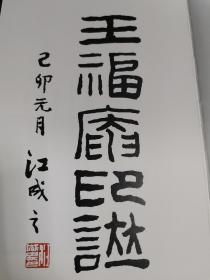 王福庵印譜
己卯元月
江成之